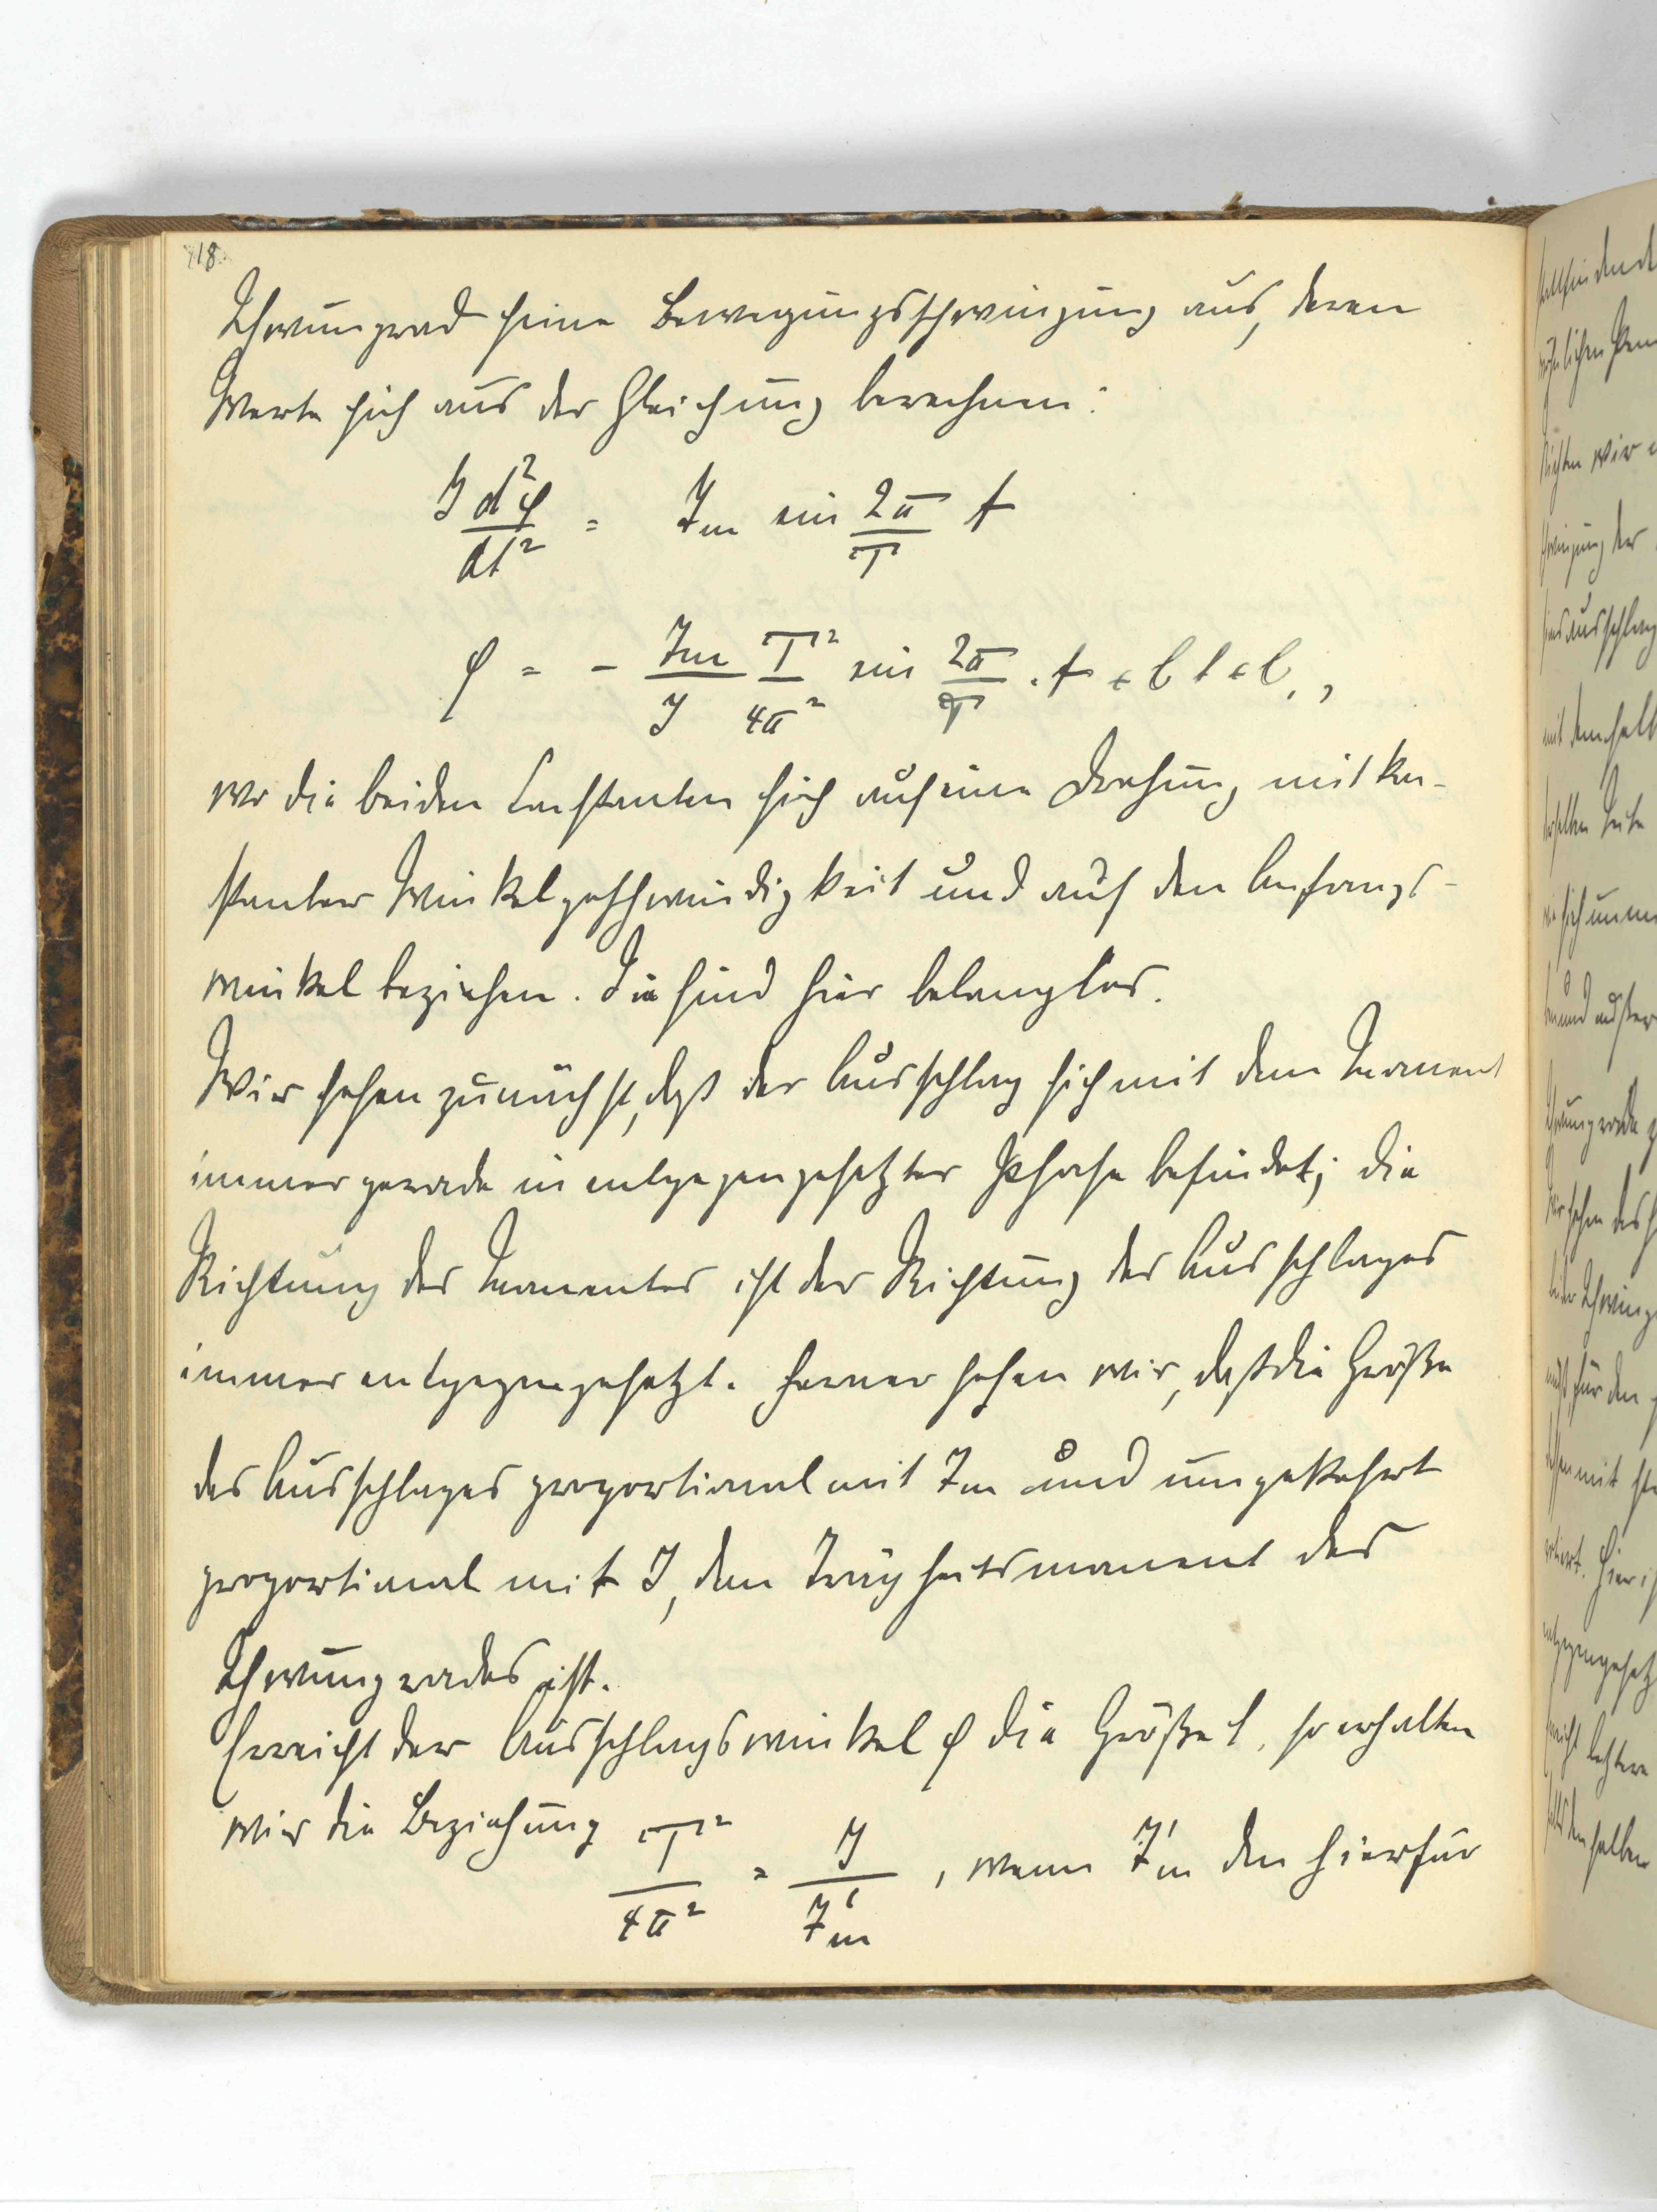 18.
Schwungrad seine Bewegungsschwingung aus, deren
Werte sich aus der Gleichung berechnen:
J d²φ/dt² = Jm sin 2π/T t
φ = - Jm/J T²/4π² sin 2π/T . t + C t + C₁,
wo die beiden Constanten sich auf eine Drehung mit kon-
stanter Winkelgeschwindigkeit und auf den Anfangs-
winkel beziehen. Sie sind hier belanglos.
Wir sehen zunächst, daß der Ausschlag sich mit dem Moment
immer gerade in entgegengesetzter Phase befindet; die
Richtung des Momentes ist der Richtung des Ausschlages
immer entgegengesetzt. Ferner sehen wir, daß die Größe
des Ausschlages proportional mit Jm und umgekehrt
proportional mit J, dem Trägheitsmoment des
Schwungrades ist.
Erreicht der Ausschlagswinkel φ die Größe 1, so erhalten
wir die Beziehung T²/4π² = J/J'm, wenn J'm den hierfür